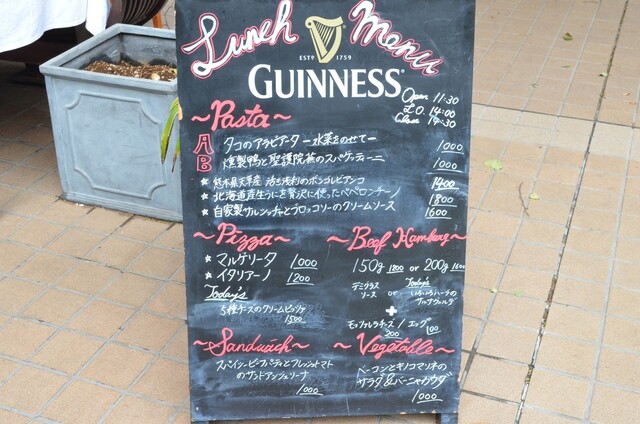 Lunch Menu
ESTD 1759
GUINNESS
Open 11:30
L.O. 14:00
Close 14:30
~Pasta~
A タコのアラビアータ ー水菜をのせてー 1000
B 燻製鴨と聖護院蕪のスパゲティーニ 1000
★ 熊本県天草産 活き浅利のボンゴレビアンコ 1400
★ 北海道産生うにを贅沢に使ったペペロンチーノ 1800
★ 自家製サルシッチャとブロッコリーのクリームソース 1600
~Pizza~
★ マルゲリータ 1000
★ イタリアーノ 1200
Today's
5種チーズのクリームピッツァ
1500
~Beef Hamberg~
150g or 200g
デミグラスソース or Today's
+
モッツァレラチーズ / エッグ
200 100
~Sandwich~
スパイシービーフパティとフレッシュトマト
の
1000
~Vegetable~
ベーコンとキノコマリネの
サラダ&バーニャカウダ
1000